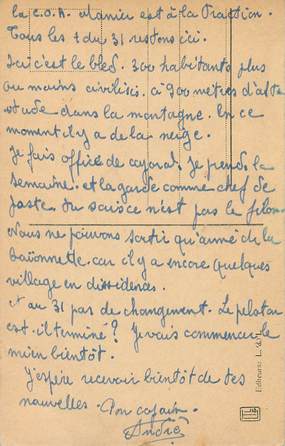 la C.O.A. Mamier est à la Traction.
Tous les t du 31 restons ici.
Ici c'est le bled. 300 habitants plus
ou moins civilisés. à 900 mètres d'alti
tude dans la montagne. En ce
moment il y a de la neige.
Je fais office de caporal. Je prends la
semaine. et la garde comme chef de
poste. du service n'est pas le filon.
Nous ne pouvons sortir qu'armé de la
baïonnette car il y a encore quelques
village en dissidences.
et au 31 pas de changement. Le peloton
est-il terminé? Je vais commencer le
mien bientôt.
J'espère recevoir bientôt de tes
nouvelles. Ton copain.
André
Editeurs: L.